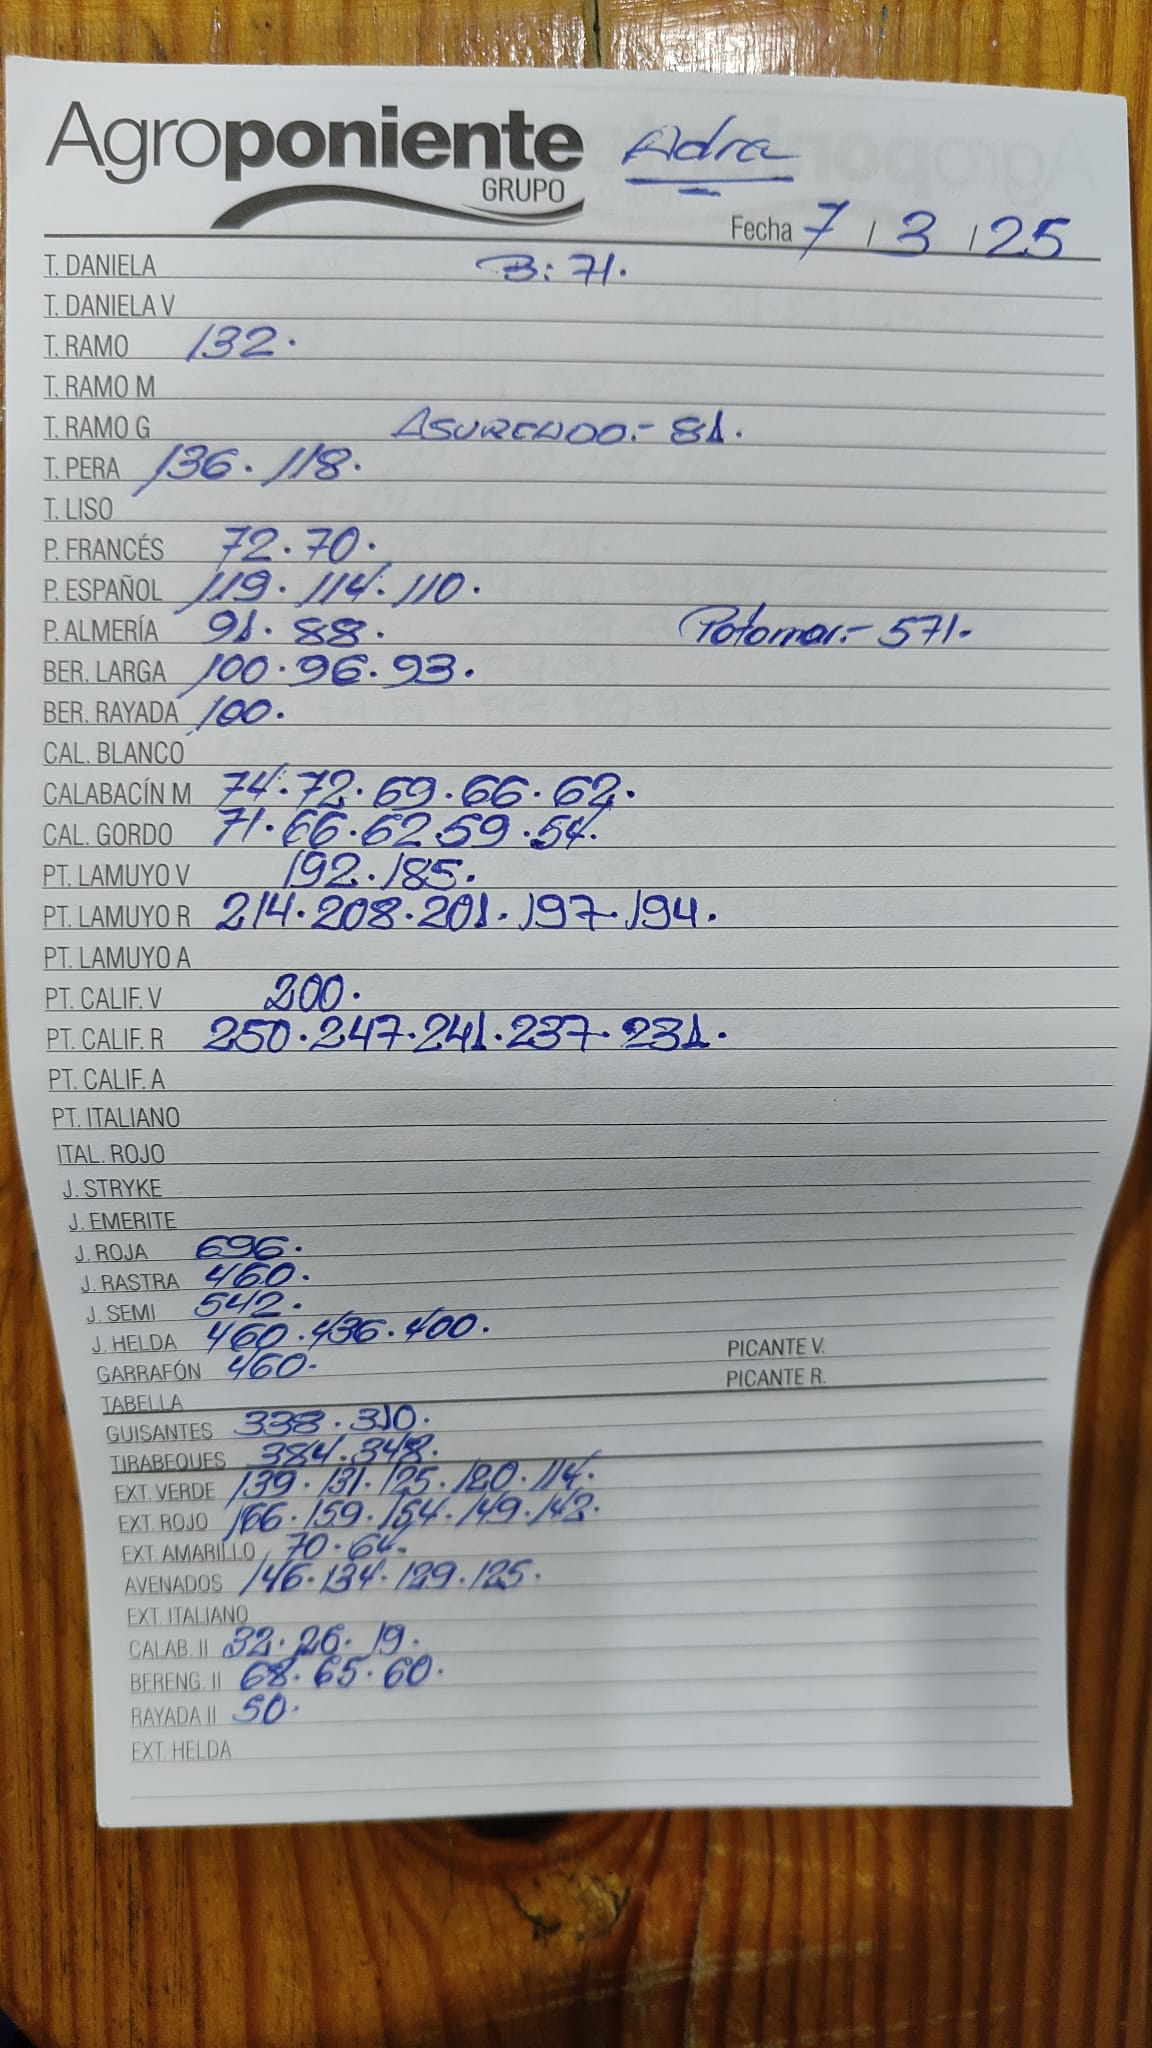 Agroponiente Adra
GRUPO
Fecha 7 / 3 / 25
T. DANIELA B: 71.
T. DANIELA V
T. RAMO 132.
T. RAMO M
T. RAMO G ASURCADO.- 81.
T. PERA 136. 118.
T. LISO
P. FRANCÉS 72. 70.
P. ESPAÑOL 119. 114. 110.
P. ALMERÍA 91. 88. Potomar.- 571.
BER. LARGA 100. 96. 93.
BER. RAYADA 100.
CAL. BLANCO
CALABACÍN M 74. 72. 69. 66. 62.
CAL. GORDO 71. 66. 62 59. 54.
PT. LAMUYO V 192. 185.
PT. LAMUYO R 214. 208. 201. 197. 194.
PT. LAMUYO A
PT. CALIF. V 200.
PT. CALIF. R 250. 247. 241. 237. 231.
PT. CALIF. A
PT. ITALIANO
ITAL. ROJO
J. STRYKE
J. EMERITE
J. ROJA 696.
J. RASTRA 460.
J. SEMI 542.
J. HELDA 460. 436. 400. PICANTE V.
GARRAFÓN 460. PICANTE R.
TABELLA
GUISANTES 338. 310.
TIRABEQUES 384. 348.
EXT. VERDE 139. 131. 125. 120. 114.
EXT. ROJO 166. 159. 154. 149. 142.
EXT. AMARILLO 70. 64.
AVENADOS 146. 134. 129. 125.
EXT. ITALIANO
CALAB. II 32. 26. 19.
BERENG. II 68. 65. 60.
RAYADA II 50.
EXT. HELDA